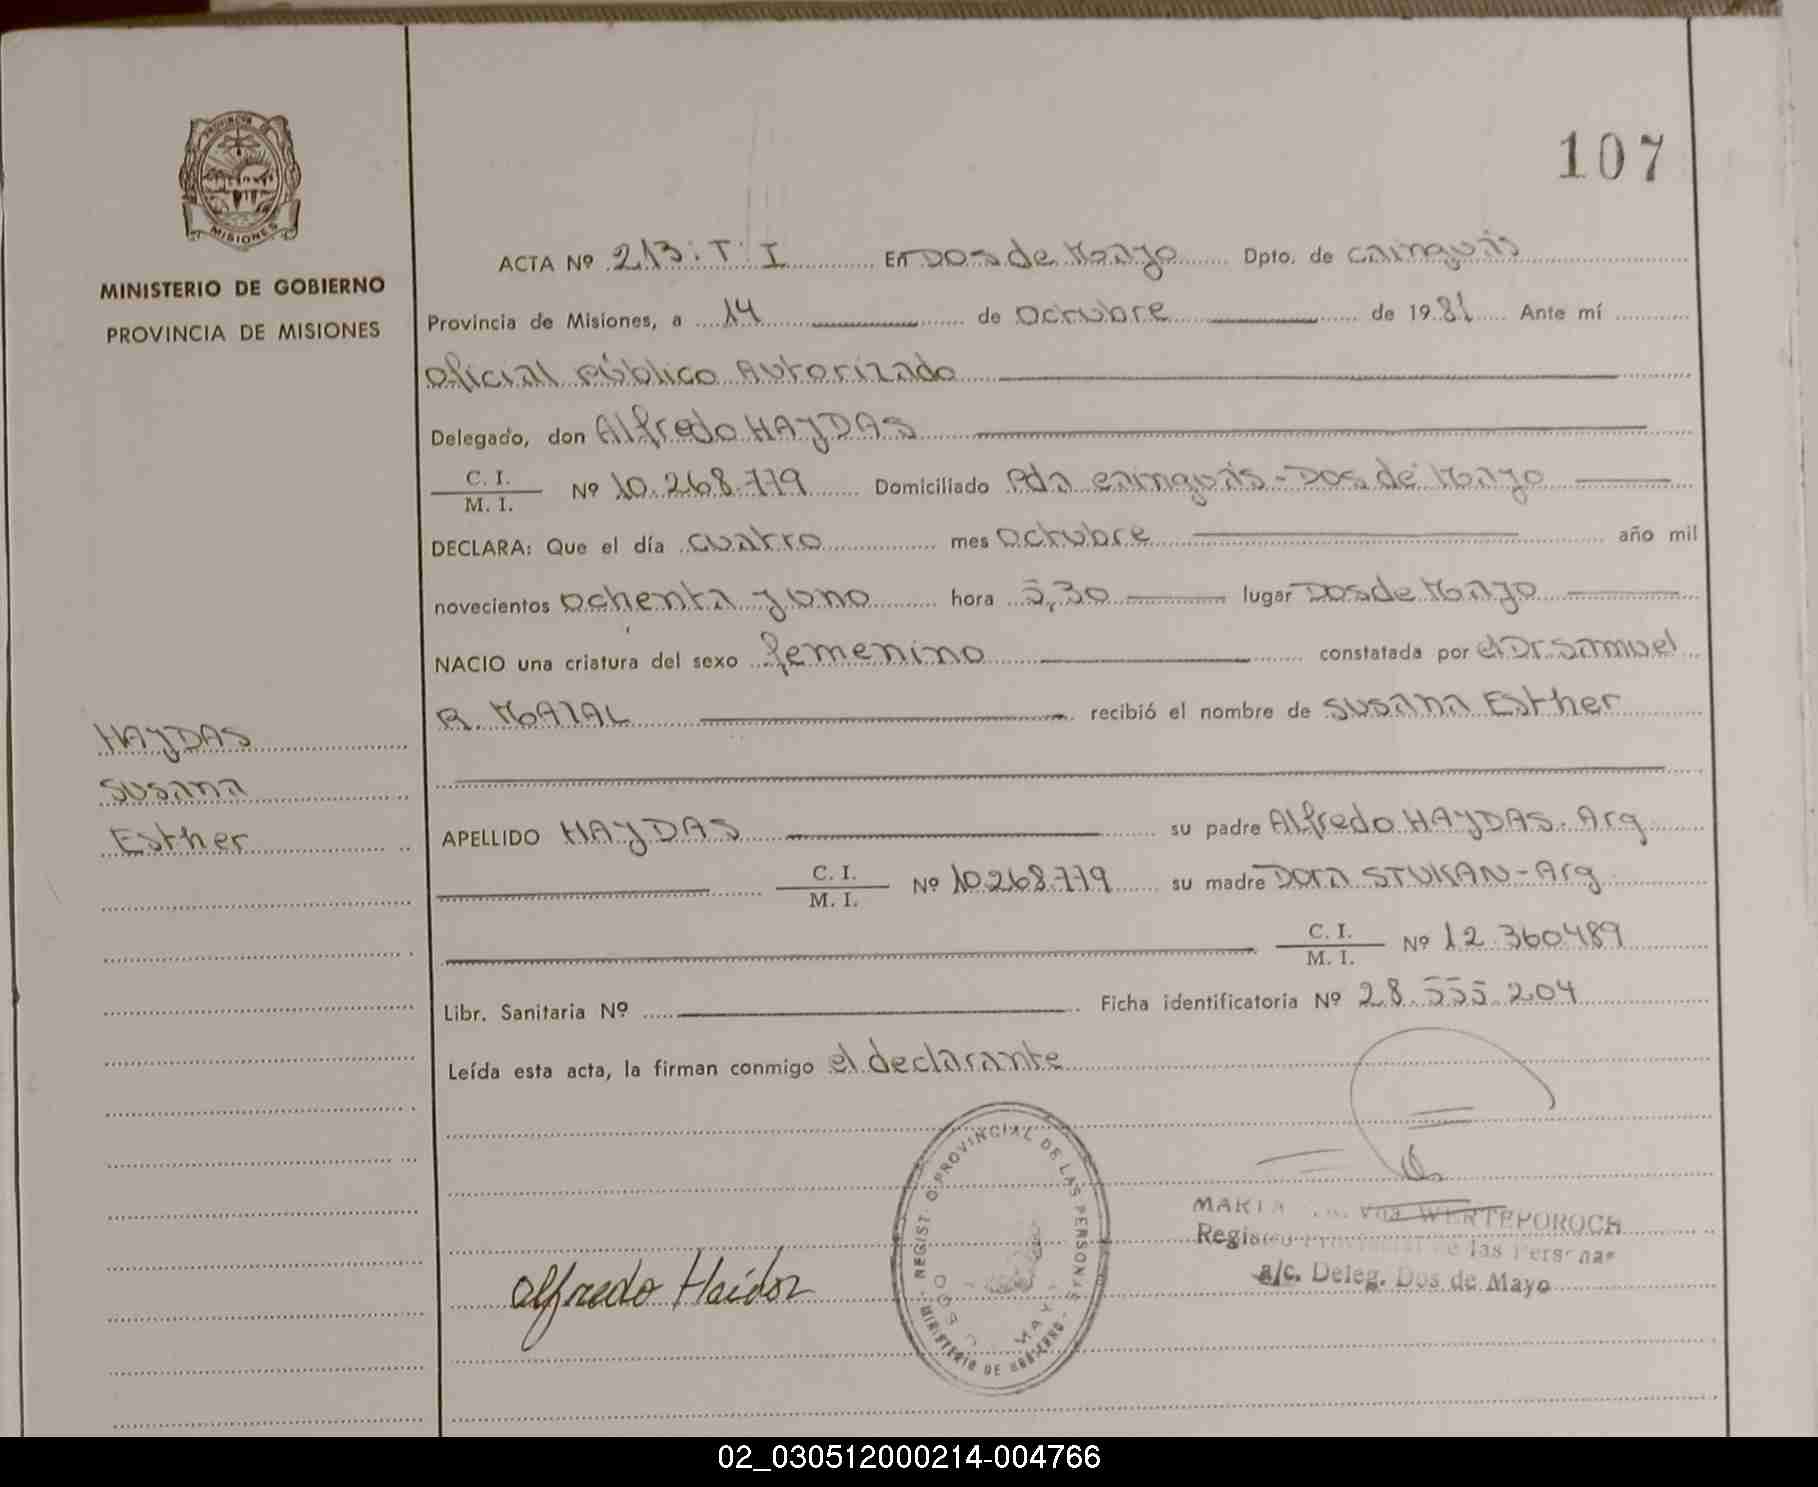 107
PROVINCIA DE
MISIONES
MINISTERIO DE GOBIERNO
PROVINCIA DE MISIONES
ACTA Nº 213. T: I En Dos de Mayo Dpto. de Cainguás
Provincia de Misiones, a 14 de Octubre de 1981 Ante mí
Oficial Público Autorizado
Delegado, don Alfredo HAYDAS
C. I.
M. I. Nº 10.268.779 Domiciliado Pda Cainguás - Dos de Mayo
DECLARA: Que el día cuatro mes Octubre año mil
novecientos ochenta y uno hora 5,30 lugar Dos de Mayo
NACIO una criatura del sexo femenino constatada por el Dr. Samuel
R. recibió el nombre de Susana Esther
HAYDAS
Susana
Esther
APELLIDO HAYDAS su padre Alfredo HAYDAS. Arg
C. I.
M. I. Nº 10.268.779 su madre Dora STUKAN - Arg
C. I.
M. I. Nº 12.360489
Libr. Sanitaria Nº Ficha identificatoria Nº 28.555.204
Leída esta acta, la firman conmigo el declarante
REGIST. O PROVINCIAL DE LAS PERSONAS
MINISTERIO DE GOBIERNO
Vda. WERTEPOROCH
Registro Provincial de las Personas
a/c. Deleg. Dos de Mayo
Alfredo Haidos
02_030512000214-004766